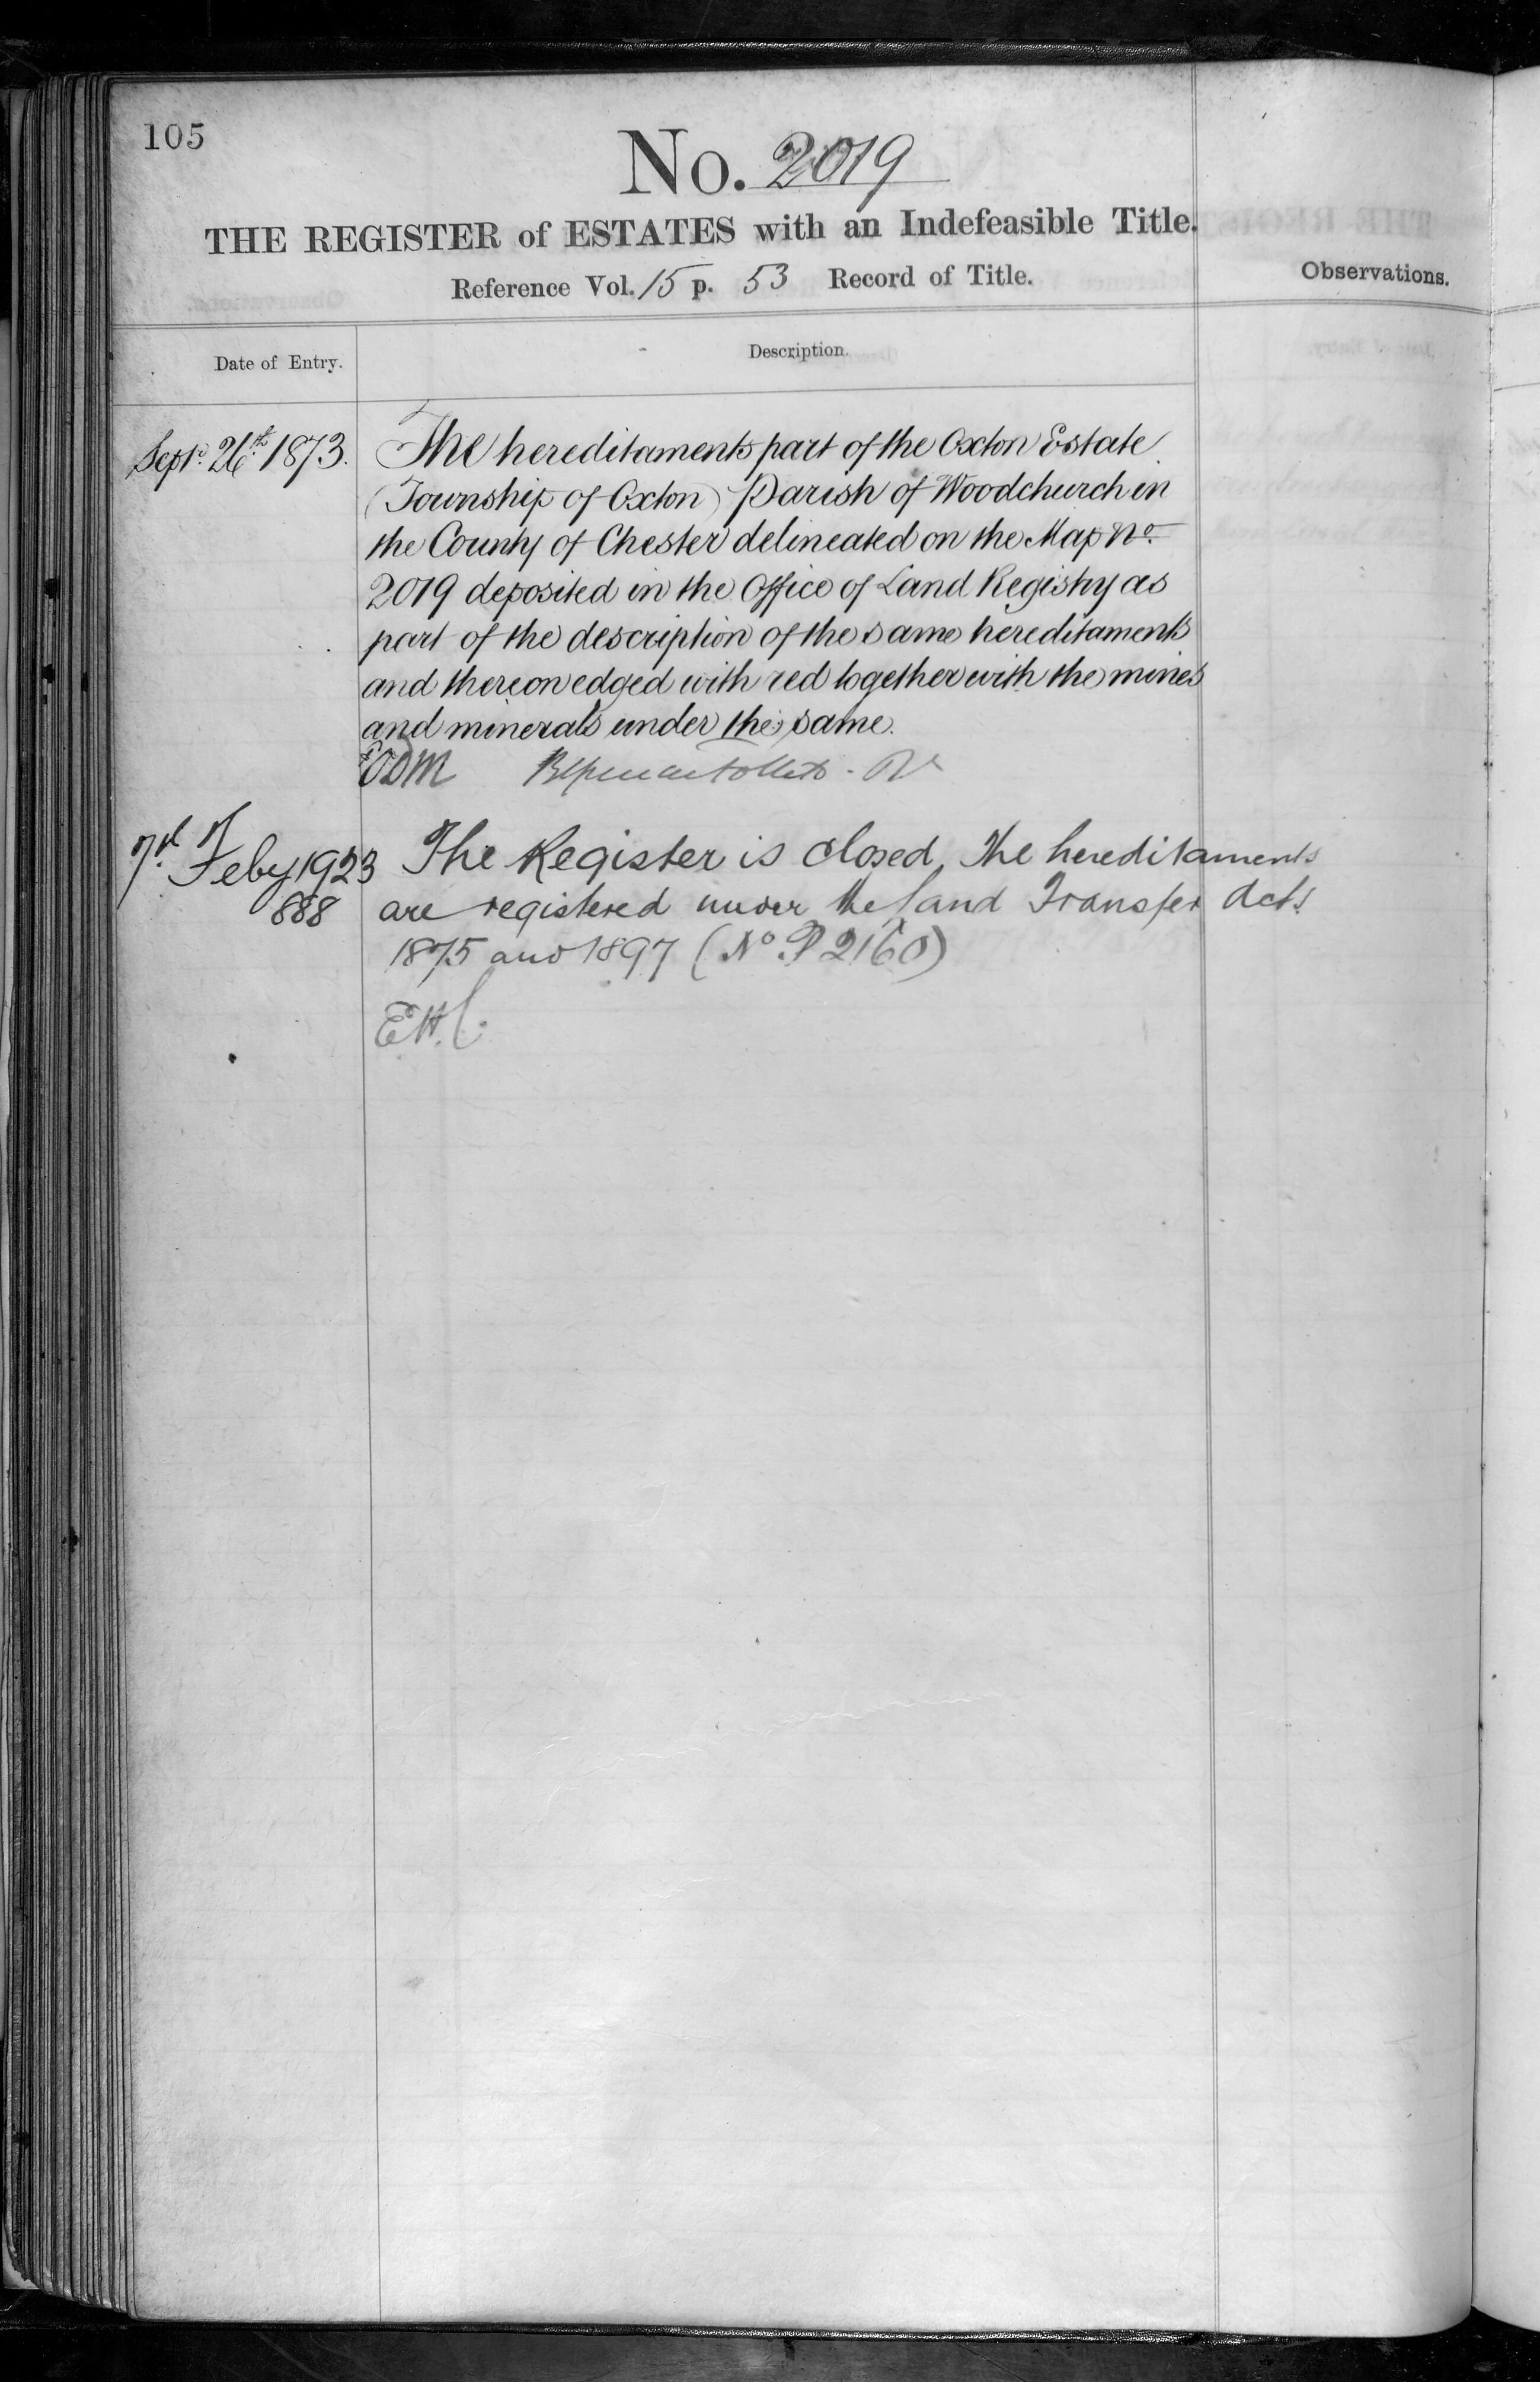 105
No. 2019
THE REGISTER of ESTATES with an Indefeasible Title.
Reference Vol. 15 p. 53 Record of Title.
Observations.
Date of Entry.
Description.
Septr. 26th 1873.
The hereditaments part of the Oxton Estate
(Township of Oxton) Parish of Woodchurch in
the County of Chester delineated on the Map No.
2019 deposited in the Office of Land Registry as
part of the description of the same hereditaments
and thereon edged with red together with the mines
and minerals under the same.
7th Feby 1923
888
The Register is closed, The hereditaments
are registered under the Land Transfer Acts
1875 and 1897 (No P 2160)